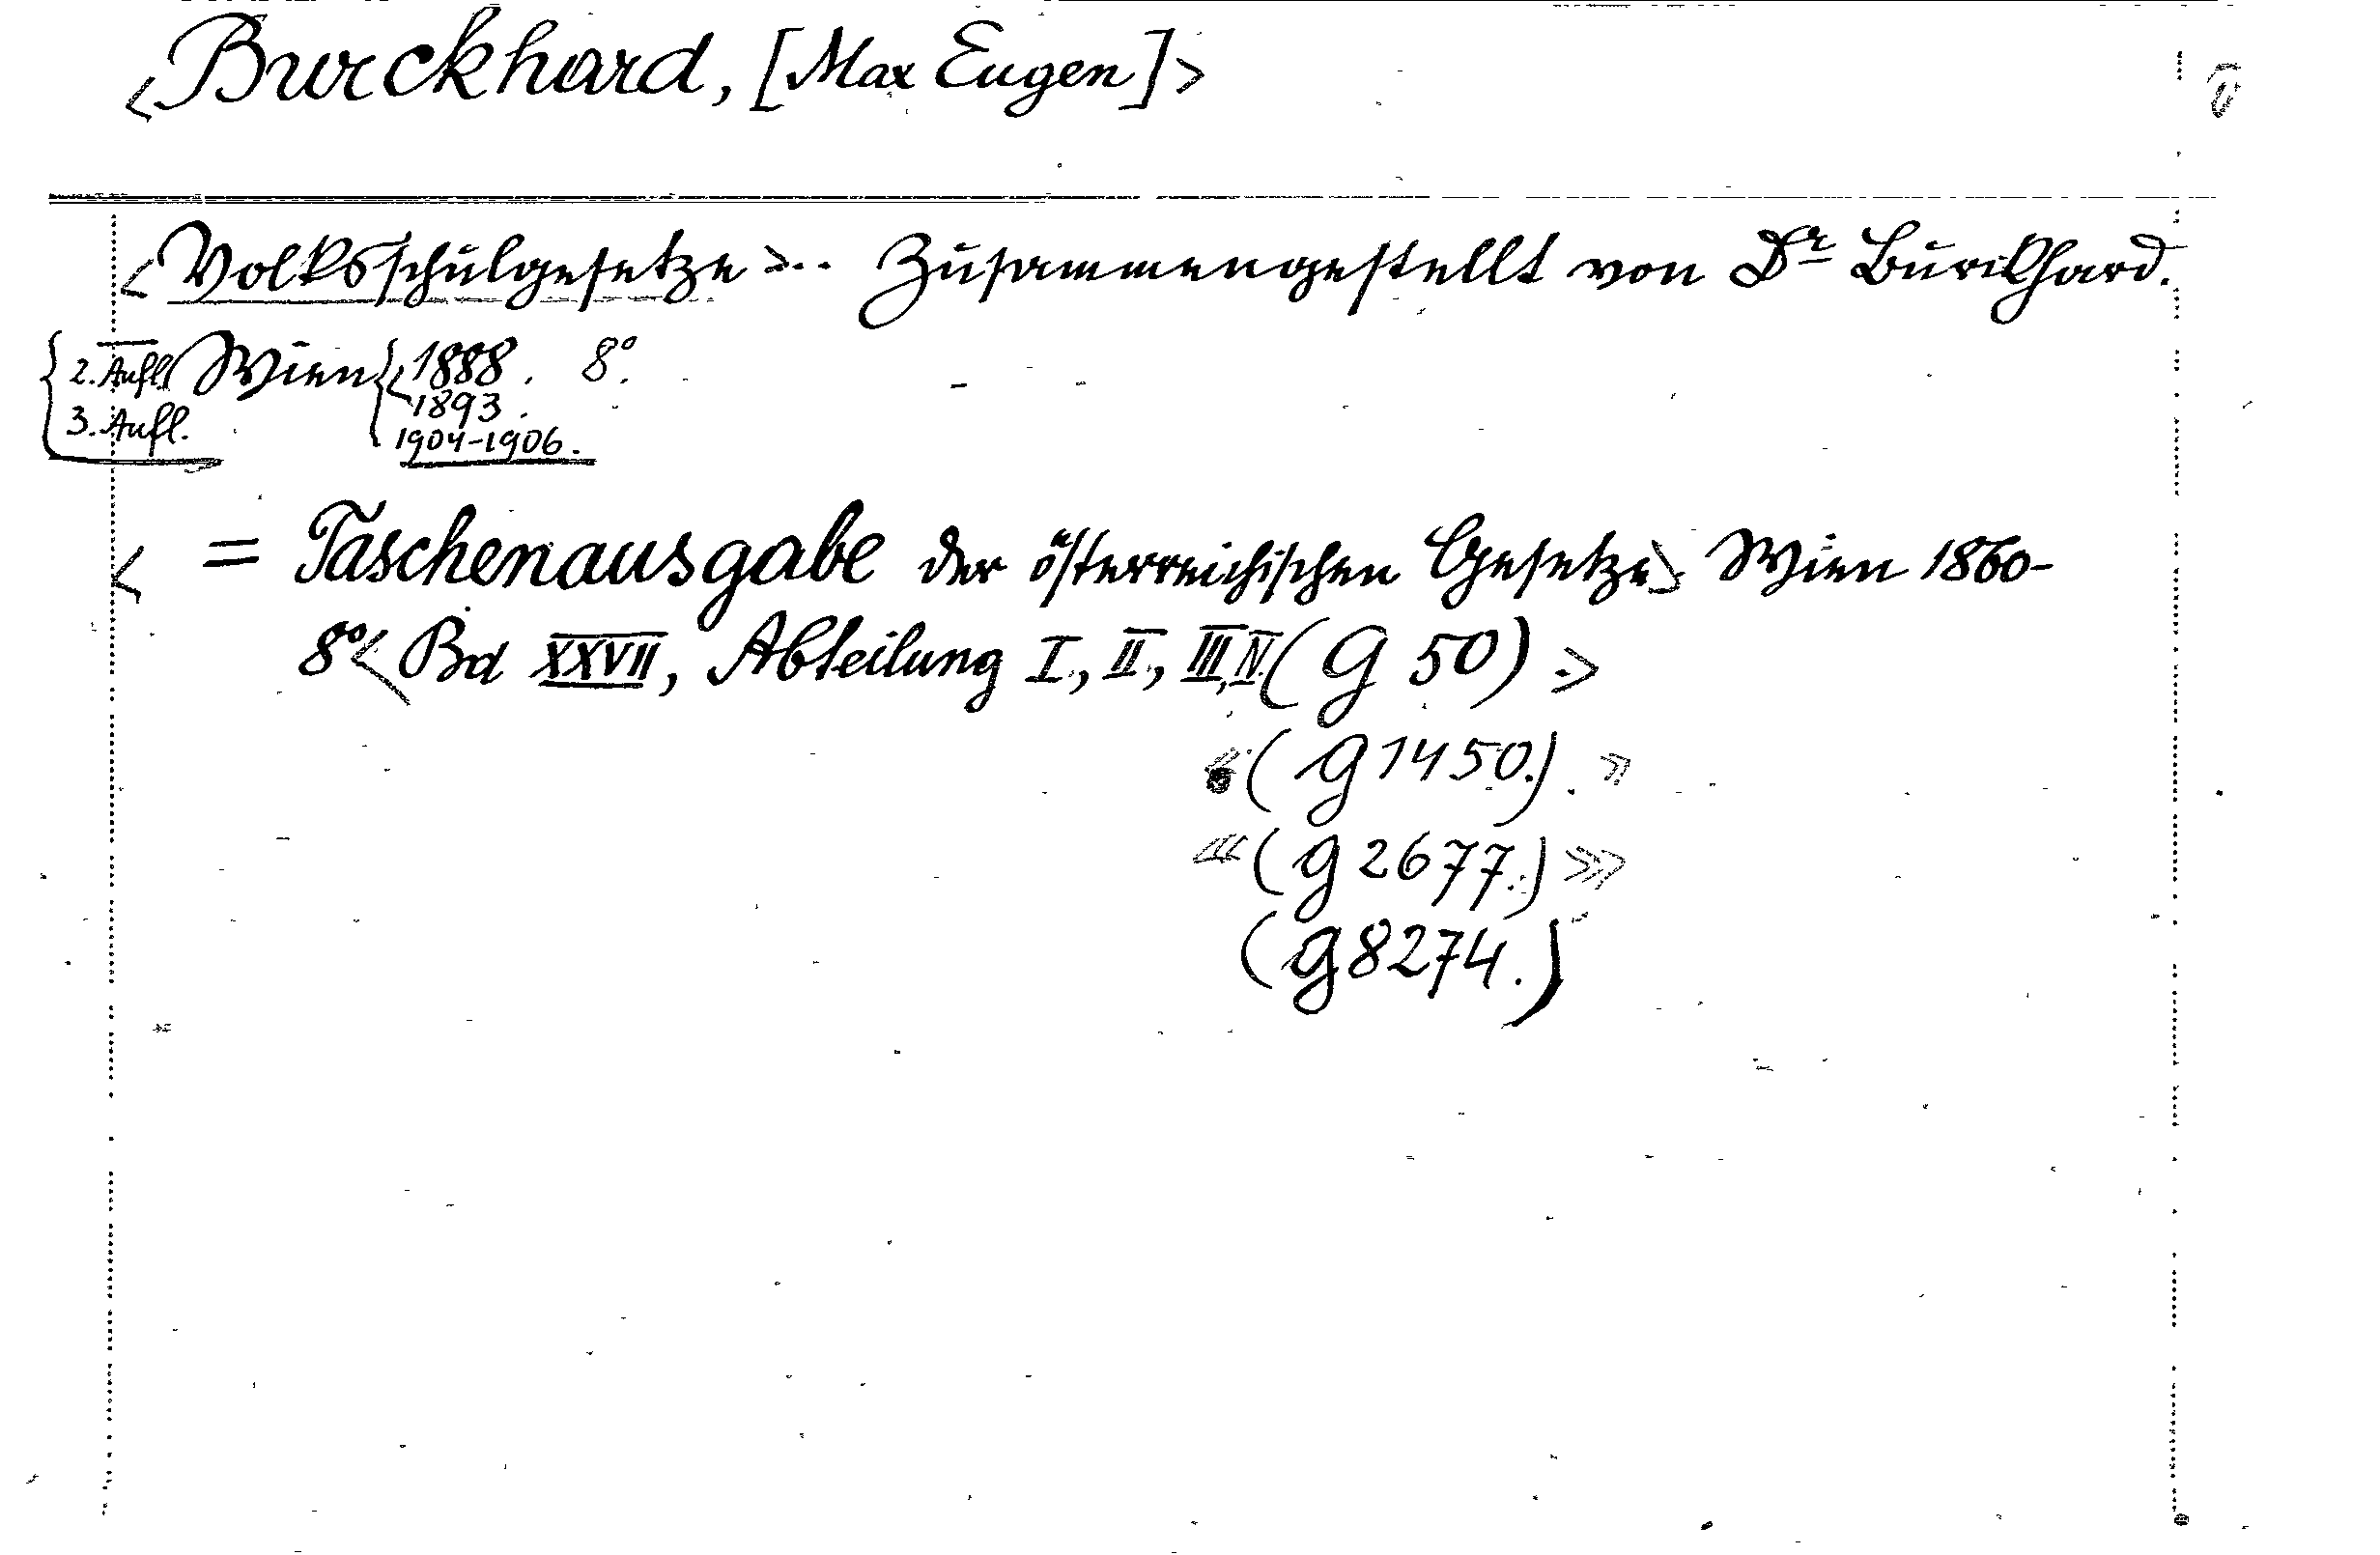 <Burckhard, [Max Eugen]>
<Volksschulgesetze>... Zusammengestellt von Dr Burckhard.
2. Aufl. Wien <1888. 8°.
1893.
3. Aufl. 1904-1906.
< = Taschenausgabe der österreichischen Gesetze> Wien 1860-
8° <Bd XXVII, Abteilung I., II., III., IV. (G 50).>
«(G 1450.).»
«(G 2677.)»
(G 8274.)